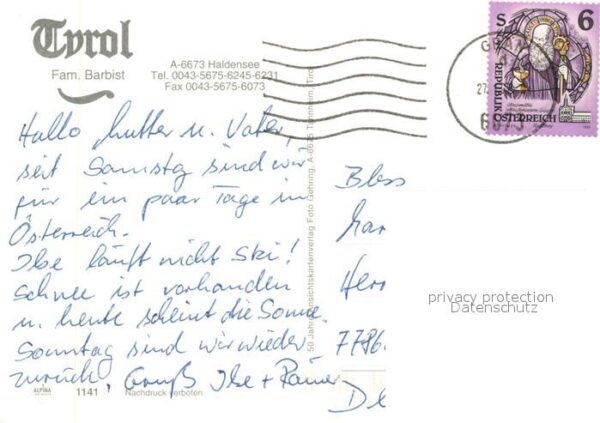 Tyrol
Fam. Barbist
A-6673 Haldensee
Tel. 0043-5675-6245-6231
Fax 0043-5675-6073
S 6
REPUBLIK
ÖSTERREICH
27.
Hallo Mutter u. Vater,
seit Samstag sind wir
für ein paar Tage in
Österreich.
Ilse läuft nicht Ski!
Schnee ist vorhanden
u. heute scheint die Sonne.
Sonntag sind wir wieder
zurück, Gruß Ilse + Rainer
50 Jahre Ansichtskartenverlag Foto Gehring, A-6675 Tannheim, Tirol
Bless
Mar
Herr
7786
De
privacy protection
Datenschutz
ALPINA
1141
Nachdruck verboten